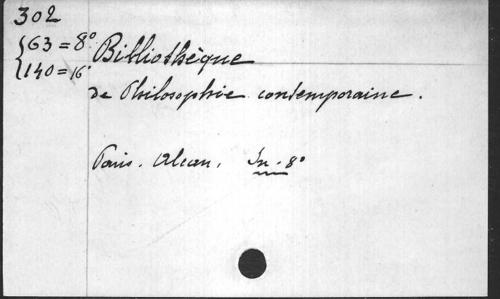 302
{63 = 8°
{140 = 16°
Bibliothèque
de Philosophie contemporaine.
Paris. Alcan. In-8°